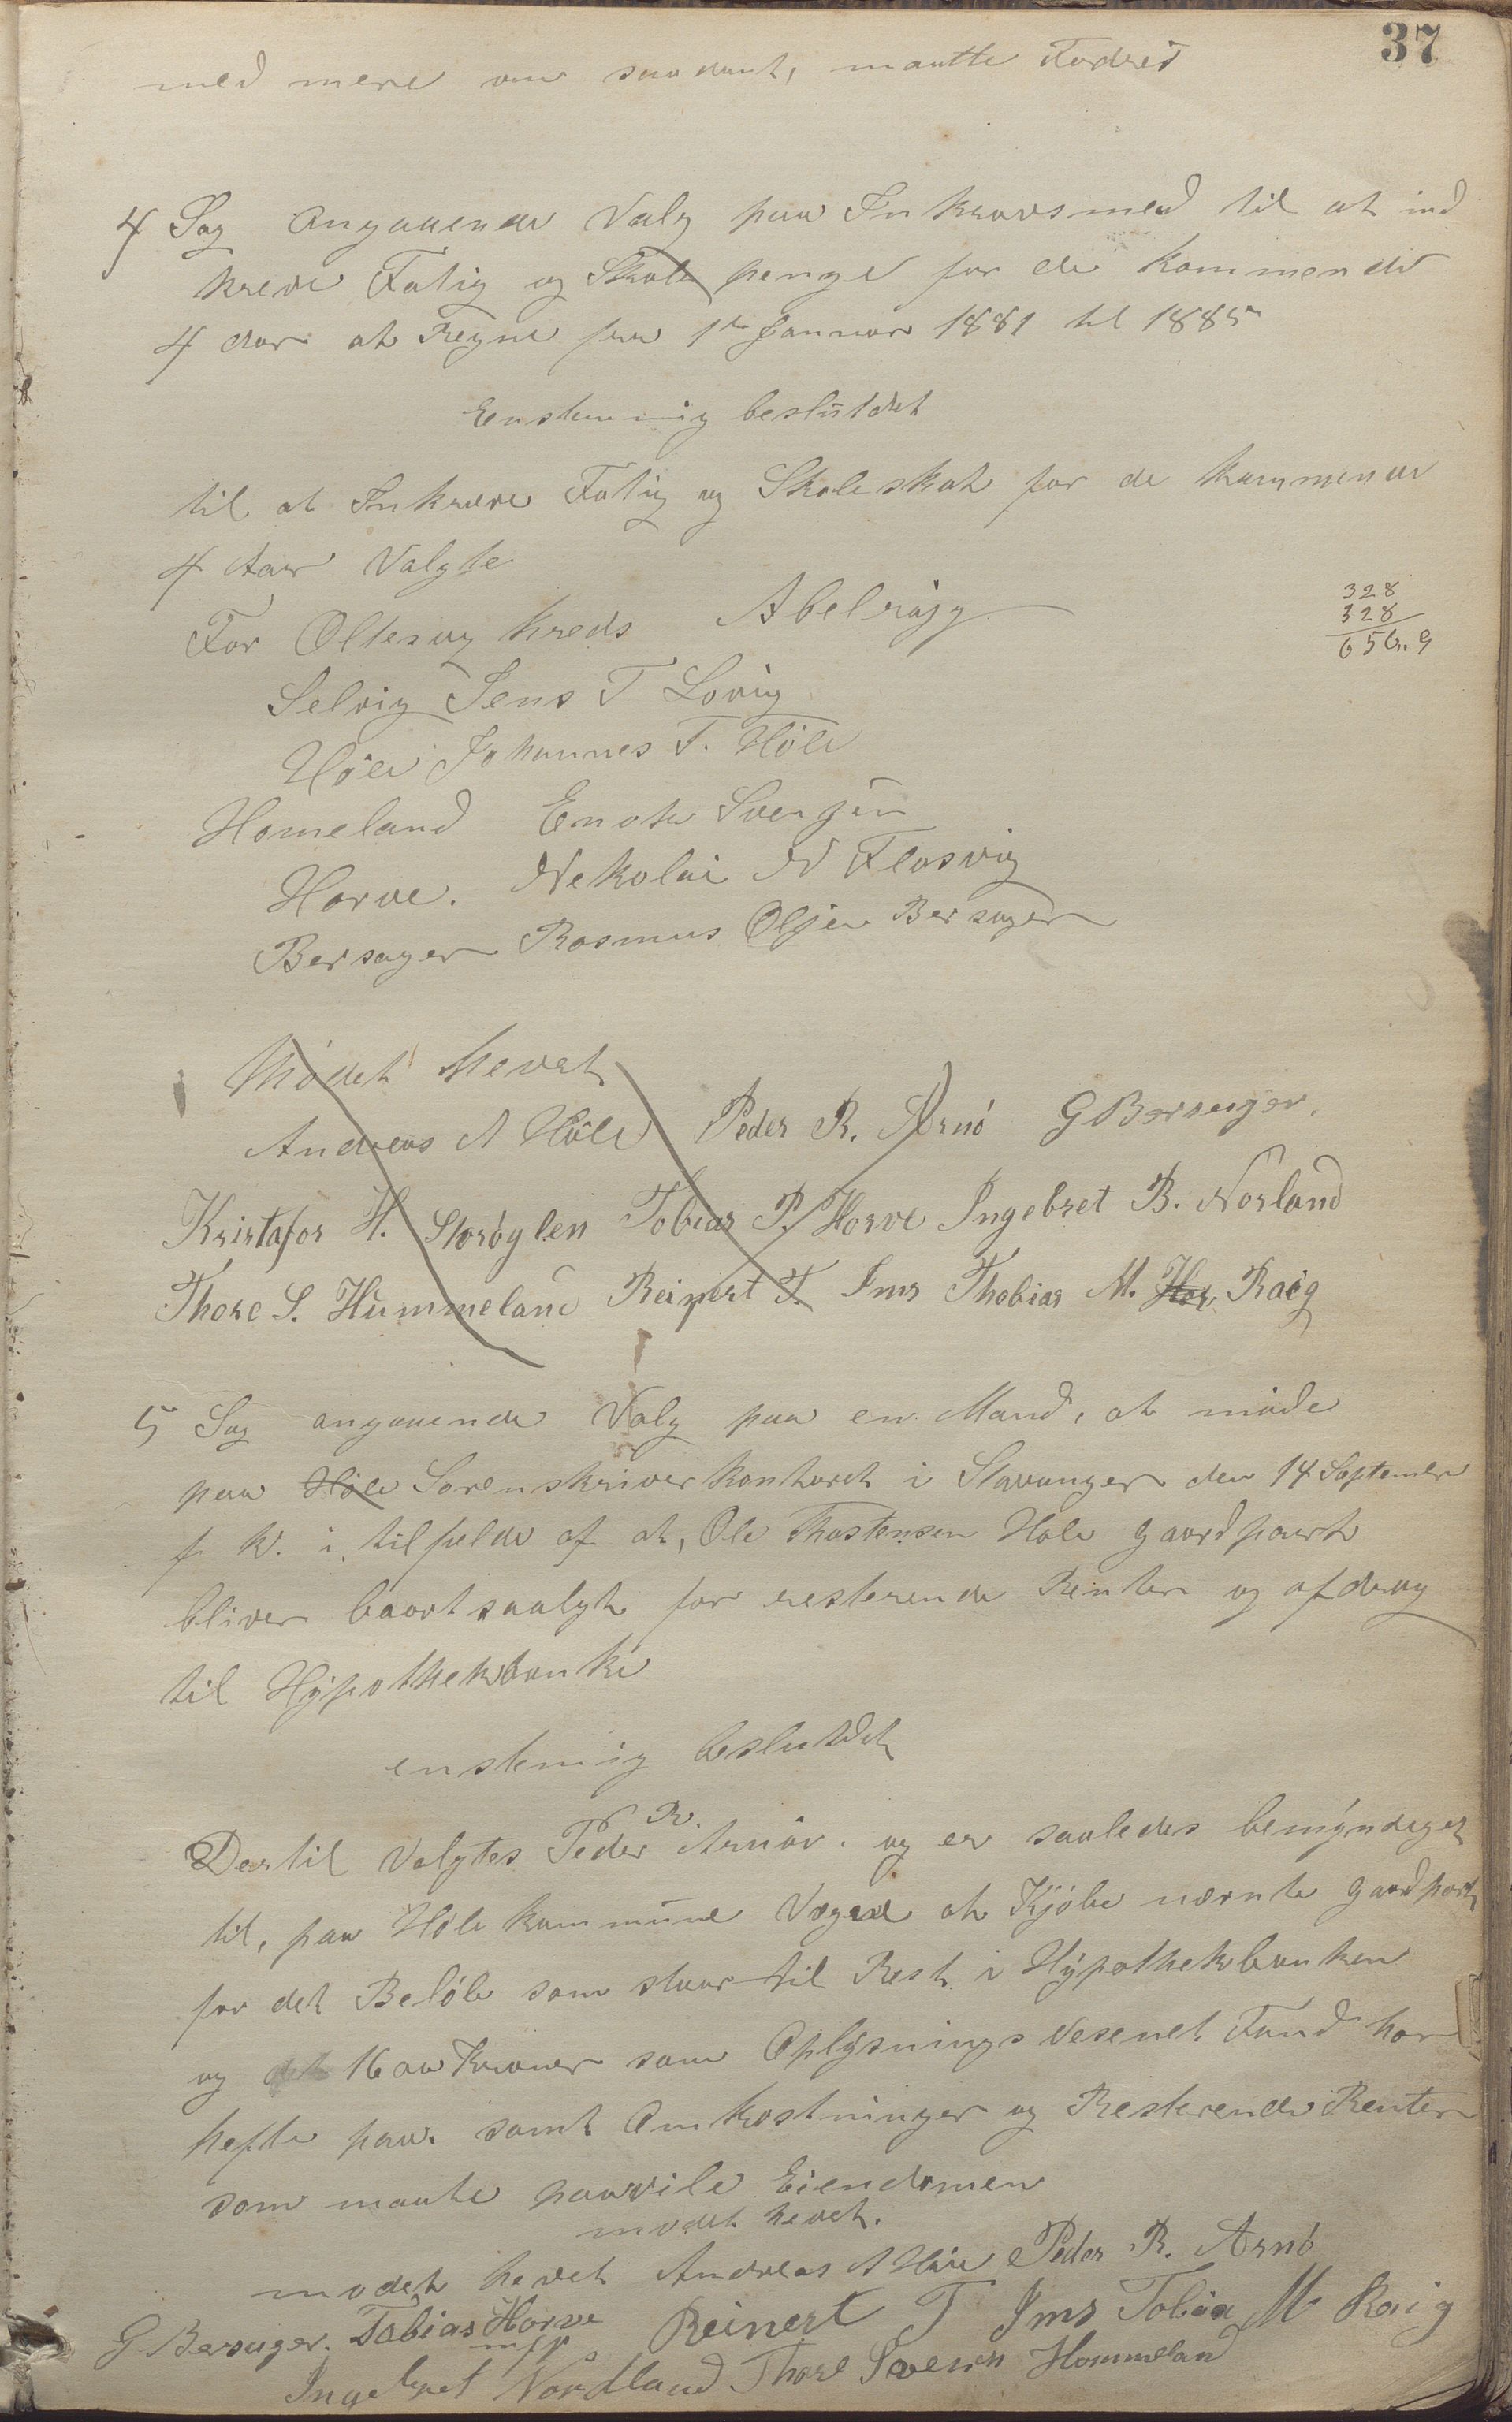 37
med mere som saadant, maatte Fodres
4 Sag angaaende Valg paa Inkravsmed til at ind
kreve Fatig og Skole penge for de kommende
4 Aar at Regne fra 1te Januar 1881 til 1885
Enstemmig beslutdet
til at Inkreve Fatig og Skoleskat for de kommende
4 Aar Valgte
For Oltesvig kreds Abelraig
Selvig Jens T Lovig
Höle Johannes T. Höle
Homeland Enok Svensen
Horve. Nekolai N Flosvig
Bersager Rasmus Olsen Bersager
328
328
656.. 9
Mödet hevet
Andreas A Höle Peder R. Arnö G Bersager.
Kristafor H. Storöglen Tobias P. Horve Ingebret B. Norland
Thore S. Hummeland Reinert T. Ims Thobias M. Hor, Raig
5 Sag angaaende Valg paa en Mand, at möde
paa Höle Sorenskriverkontoret i Stavanger den 14 September
f k. i tilfelde af at, Ole Thostensen Höle gaardpart
bliver baortsaalgt for resterende Renter og afdrag
til Hypothekbanke
enstemig beslutdet
Dertil Valgtes Peder R. Arnöe. og er saaledes bemyndeget
til, paa Höle kommune Vegne at Kjöbe nevnte gaardpart
for det Belöb som staar til Rest i Hypothekbanken
og det 1600 Kroner som Oplysnings Vesenet Fond har
hefte paa. samt Omkostninger og Resterende Renter
som maate paavile Eiendomen
mödet hevet.
mödet hevet Andreas A Höle Peder R. Arnö
G Bersager. Tobias Horve Reinert T Ims Tobias M Raig
Ingebret Nordland Thore Svensen Hommeland